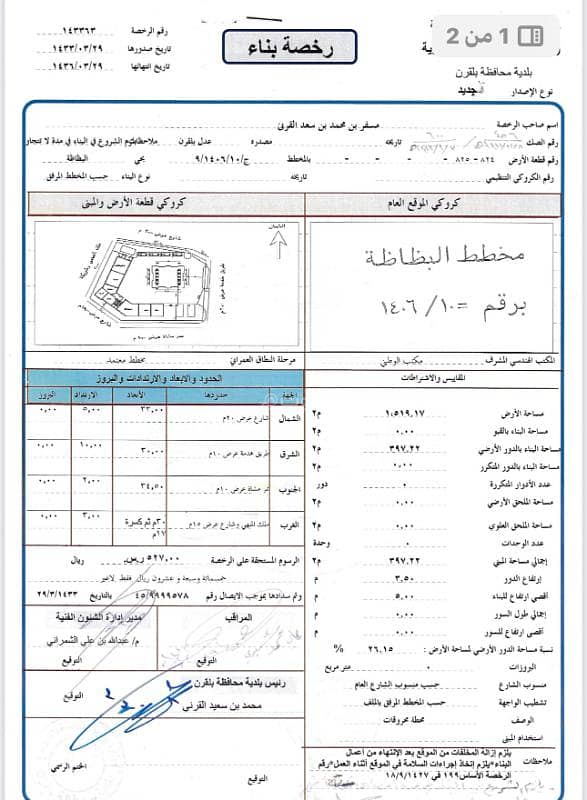 1 من 2
رخصة بناء
رقم الرخصة ١٤٣٣٦٣
تاريخ صدورها ١٤٣٣/٠٣/٢٩
تاريخ انتهائها ١٤٣٦/٠٣/٢٩
بلدية محافظة بلقرن
نوع الإصدار
اسم صاحب الرخصة مسفر بن محمد بن سعد القرني
رقم الصك تاريخه مصدره عدل بلقرن ملاحظات
رقم قطعة الأرض ٨٢٤ - ٨٢٥ - - - - بالمخطط ج/٩/١٤٠٦/١٠ بحي البظاظة
رقم الكروكي التنظيمي تاريخه نوع البناء حسب المخطط المرفق
كروكي الموقع العام
كروكي قطعة الأرض والمبنى
مخطط البظاظة
برقم = ١٠ / ١٤٠٦
الشمال
المكتب الهندسي المشرف مكتب الوطني
مرحلة النطاق العمراني مخطط معتمد
المقاييس والاشتراطات
مساحة الأرض ١,٥١٩.١٧ م٢
مساحة البناء بالقبو ٠.٠٠ م٢
مساحة البناء بالدور الأرضي ٣٩٧.٢٢ م٢
مساحة البناء بالدور المتكرر ٠.٠٠ م٢
عدد الأدوار المتكررة ٠ دور
مساحة الملحق الأرضي ٠.٠٠ م٢
مساحة الملحق العلوي ٠.٠٠ م٢
عدد الوحدات ٠ وحدة
إجمالي مساحة المبنى ٣٩٧.٢٢ م٢
إرتفاع الدور ٣.٥٠ م
أقصى ارتفاع للبناء ٥.٠٠ م
إجمالي طول السور ٠.٠٠ م
أقصى إرتفاع للسور ٠.٠٠ م
نسبة مساحة الدور الأرضي لمساحة الأرض : ٢٦.١٥ %
البروزات ٠ متر مربع
منسوب الشارع حسب منسوب الشارع العام
تشطيب الواجهة حسب المخطط المرفق بالملف
الوصف محطة محروقات
استخدام المبنى
ملاحظات يلزم إزالة المخلفات من الموقع بعد الإنتهاء من أعمال
البناء*يلزم إتخاذ إجراءات السلامة في الموقع أثناء العمل*رقم
الرخصة الأساس١٩٩ في ١٨/٩/١٤٢٧
الحدود والابعاد والارتدادات والبروز
الجهة حدودها الأبعاد الارتداد البروز
الشمال شارع عرض ٢٠م ٣٣.٠٠ ٥.٠٠ ٠.٠٠
الشرق طريق خدمة عرض ١٠م ٣٠.٠٠ ١٠.٠٠ ٠.٠٠
الجنوب ممر مشاة عرض ١٠م ٣٤.٥٠ ٢.٠٠ ٠.٠٠
الغرب عرض ١٥م ٣٠م ثم كسرة ٢٧م ٣.٠٠ ٠.٠٠
الرسوم المستحقة على الرخصة ٥٢٧.٠٠ ر.س ريال
خمسمائة وسبعة و عشرون ريال فقط لاغير
وتم سدادها بموجب الايصال رقم ٤٥/٩٩٩٩٥٧٨ بالتاريخ ٢٩/٣/١٤٣٣
المراقب
التوقيع
مدير إدارة الشئون الفنية
م/ عبدالله بن علي الشمراني
التوقيع
رئيس بلدية محافظة بلقرن
محمد بن سعيد القرني
التوقيع
الختم الرسمي
التوقيع